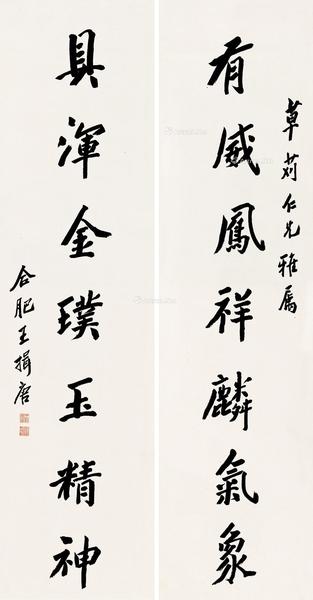 草茢仁兄雅屬
有威鳳祥麟氣象
具渾金璞玉精神
合肥王揖唐